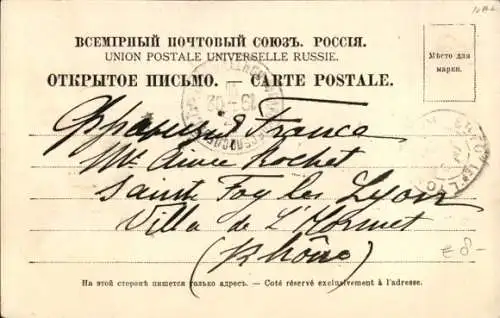 ВСЕМІРНЫЙ ПОЧТОВЫЙ СОЮЗЪ. РОССІЯ.
UNION POSTALE UNIVERSELLE RUSSIE.
ОТКРЫТОЕ ПИСЬМО. — CARTE POSTALE.
Мѣсто для
марки.
France
Rochet
Sainte Foy les Lyon
Villa de L'Hormet
(Rhône)
€ 8-
На этой сторонѣ пишется только адресъ. - Coté réservé exclusivement à l'adresse.